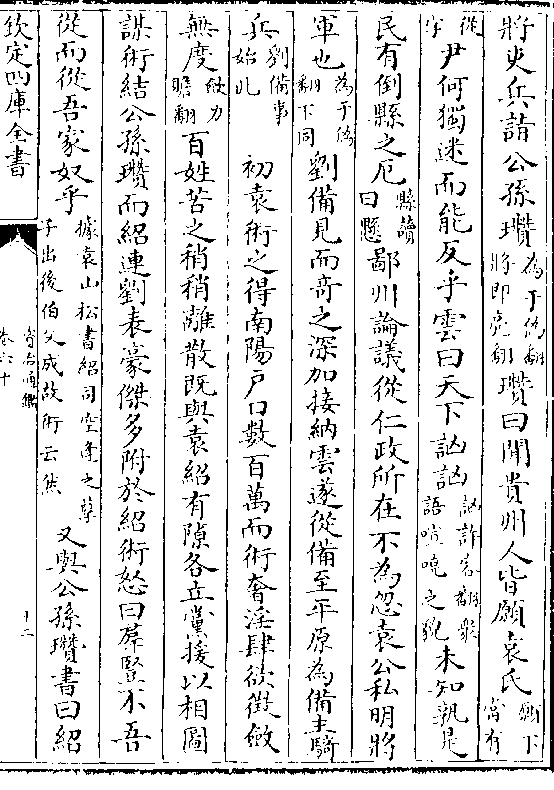 將吏兵詣公孫瓚為于偽翻將即亮翻瓚曰聞貴州人皆願袁氏鄉下當有
從字尹何獨迷而能反乎雲曰天下訩訩訩許容翻衆語喧嘵之貌未知孰是
民有倒縣之厄縣讀曰懸鄙州論議從仁政所在不為忽袁公私明將
軍也為于偽翻下同劉備見而奇之深加接納雲遂從備至平原為備主騎
兵劉備事始此初袁術之得南陽戶口數百萬而術奢淫肆欲徵斂
無度斂力贍翻百姓苦之稍稍離散既與袁紹有隙各立黨援以相圖
謀術結公孫瓚而紹連劉表豪傑多附於紹術怒曰羣豎不吾
從而從吾家奴乎據袁山松書紹司空逢之孽子出後伯父成故術云然又與公孫瓚書曰紹
欽定四庫全書
資治通鑑
卷六十
十二